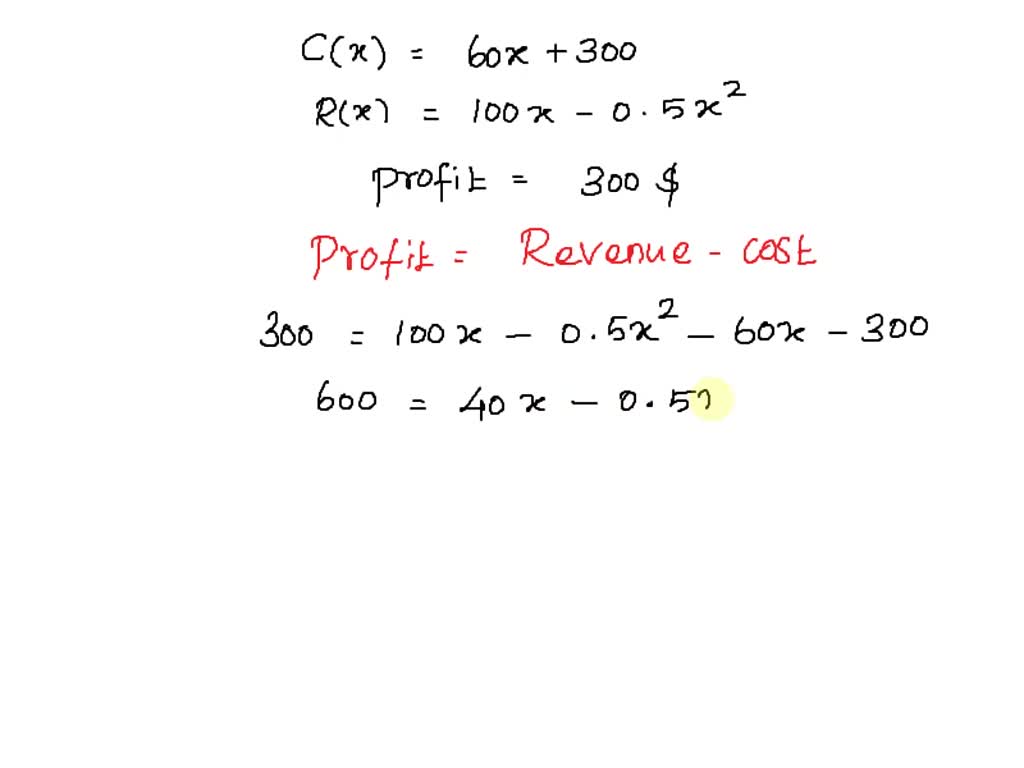 C(x) = 60x + 300
R(x) = 100x - 0.5x²
Profit = 300 $
Profit = Revenue - cost
300 = 100x - 0.5x² - 60x - 300
600 = 40x - 0.5